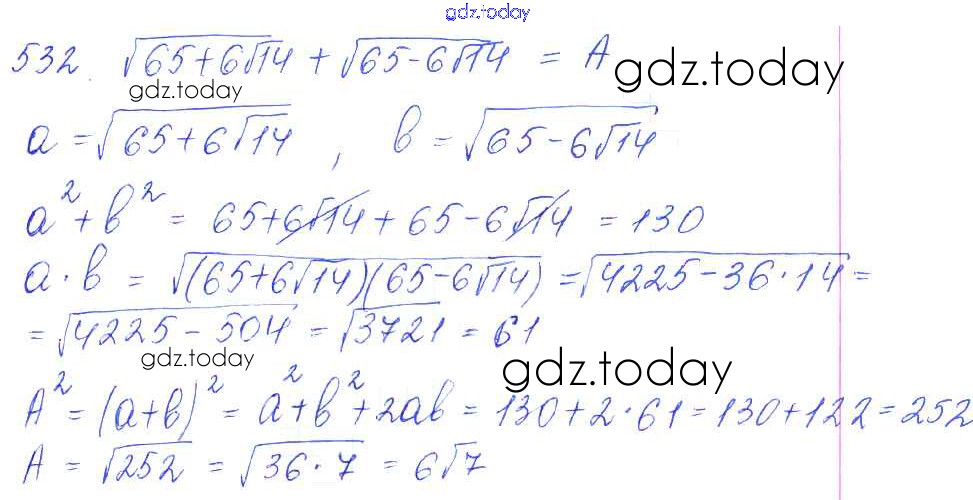 gdz.today
532. √(65+6√14) + √(65-6√14) = A
gdz.today
gdz.today
a = √(65+6√14) , в = √(65-6√14)
a² + в² = 65+6√14 + 65-6√14 = 130
a · в = √((65+6√14)(65-6√14)) = √(4225-36·14) =
= √(4225-504) = √3721 = 61
gdz.today
gdz.today
A² = (a+в)² = a²+в²+2aв = 130+2·61 = 130+122 = 252
A = √252 = √(36·7) = 6√7